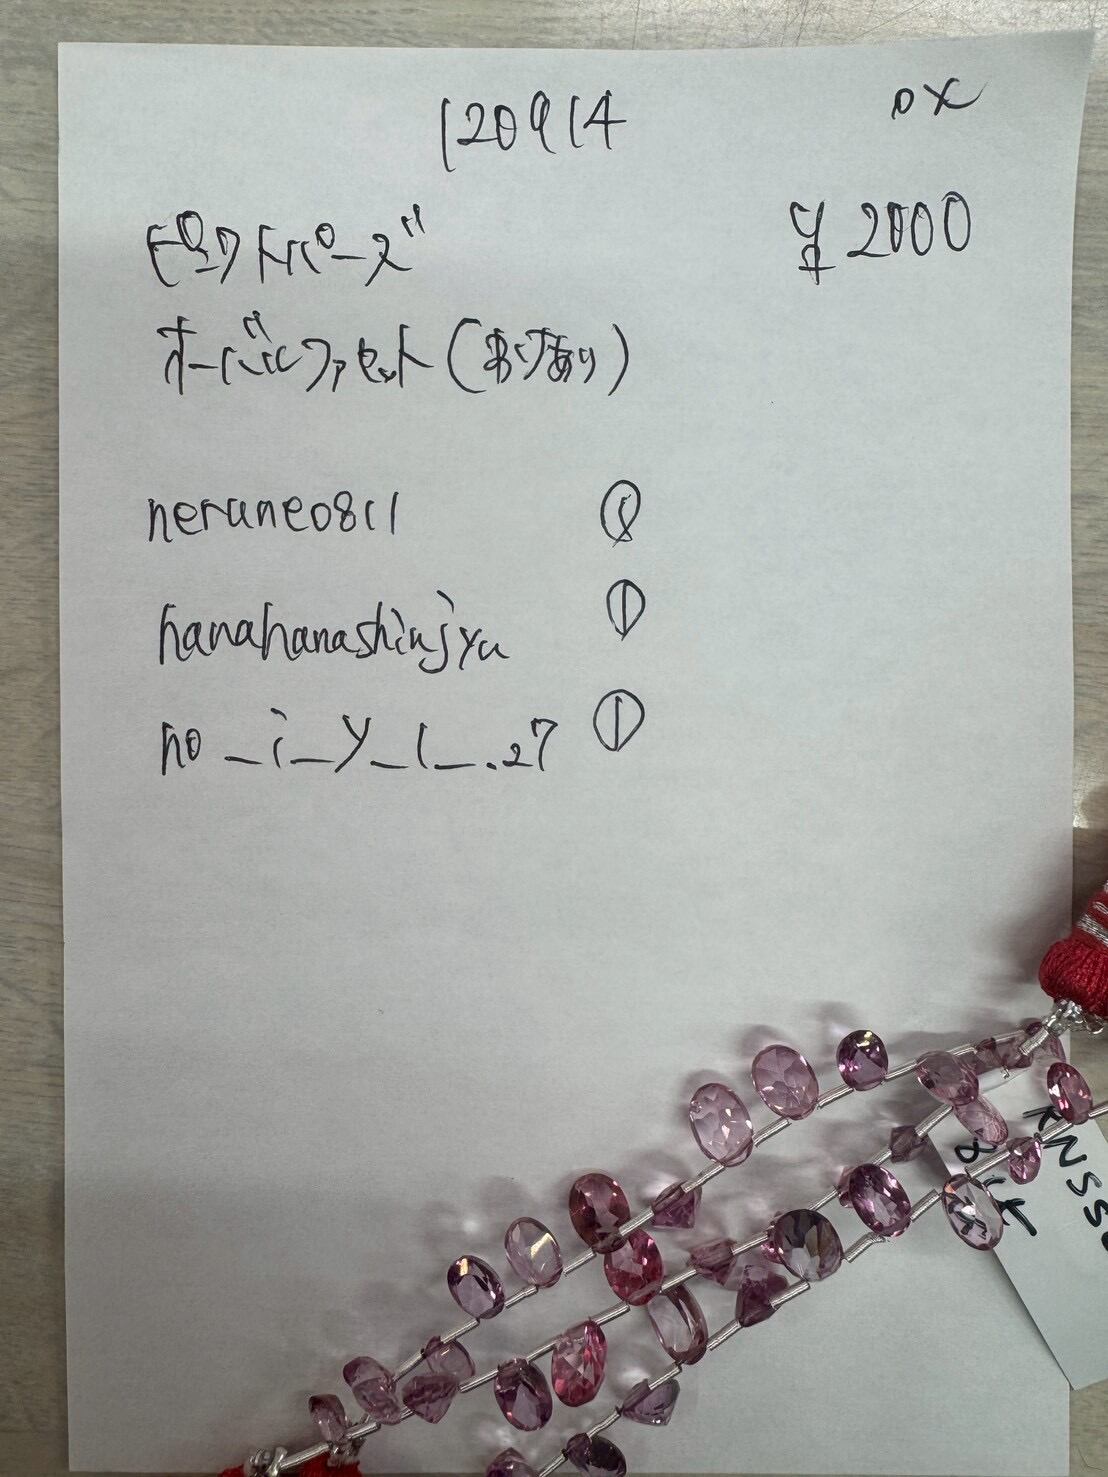 120914
0X
ピンクトパーズ
¥2000
オーバルファセット(あけあり)
nerune0811
①
hanahanashinjyu
①
no_i_y_l_.27
①
KNSS